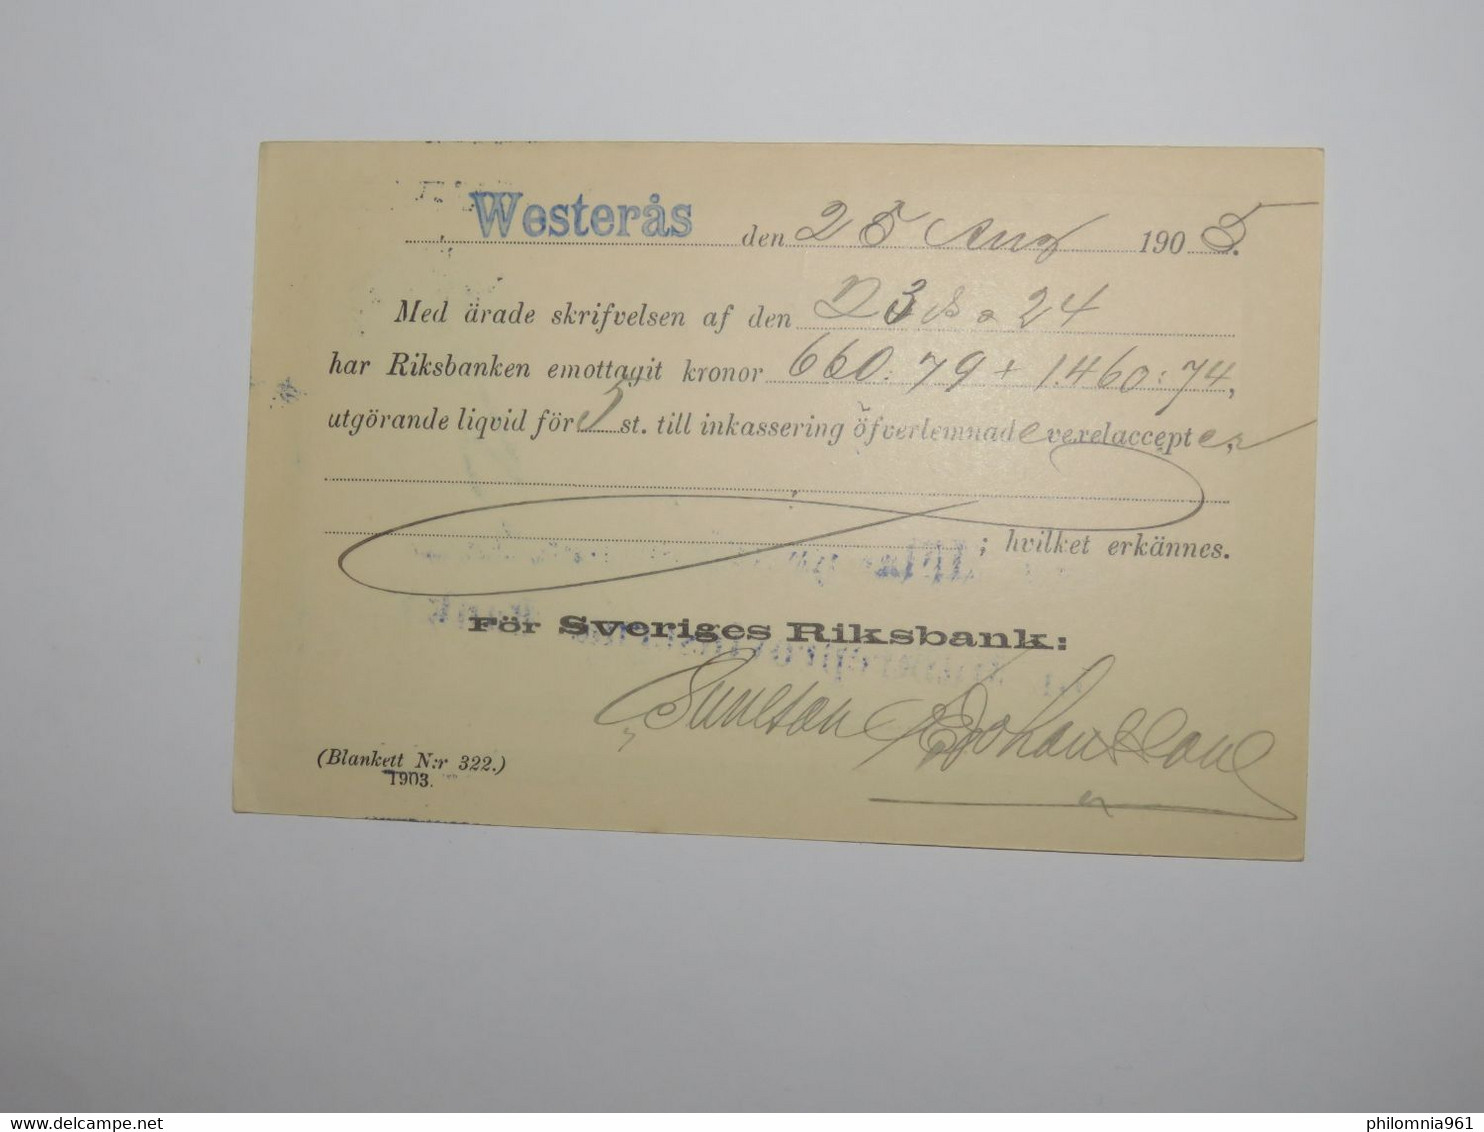 Westerås den 25 Aug 1905.
Med ärade skrifvelsen af den 23 & 24
har Riksbanken emottagit kronor 660:79 + 1.460:74,
utgörande liqvid för st. till inkassering öfverlemnade vexelaccepter,
; hvilket erkännes.
För Sveriges Riksbank:
Johansson
(Blankett N:r 322.)
1903.
delcampe.net
philomnia961